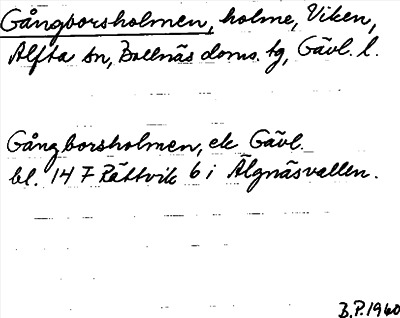 Gångborsholmen, holme, Viken,
Alfta sn, Bollnäs doms. tg, Gävl. l.
Gångborsholmen, ek Gävl.
bl. 14 F Rättvik 6 i Älgnäsvallen.
B.P. 1960